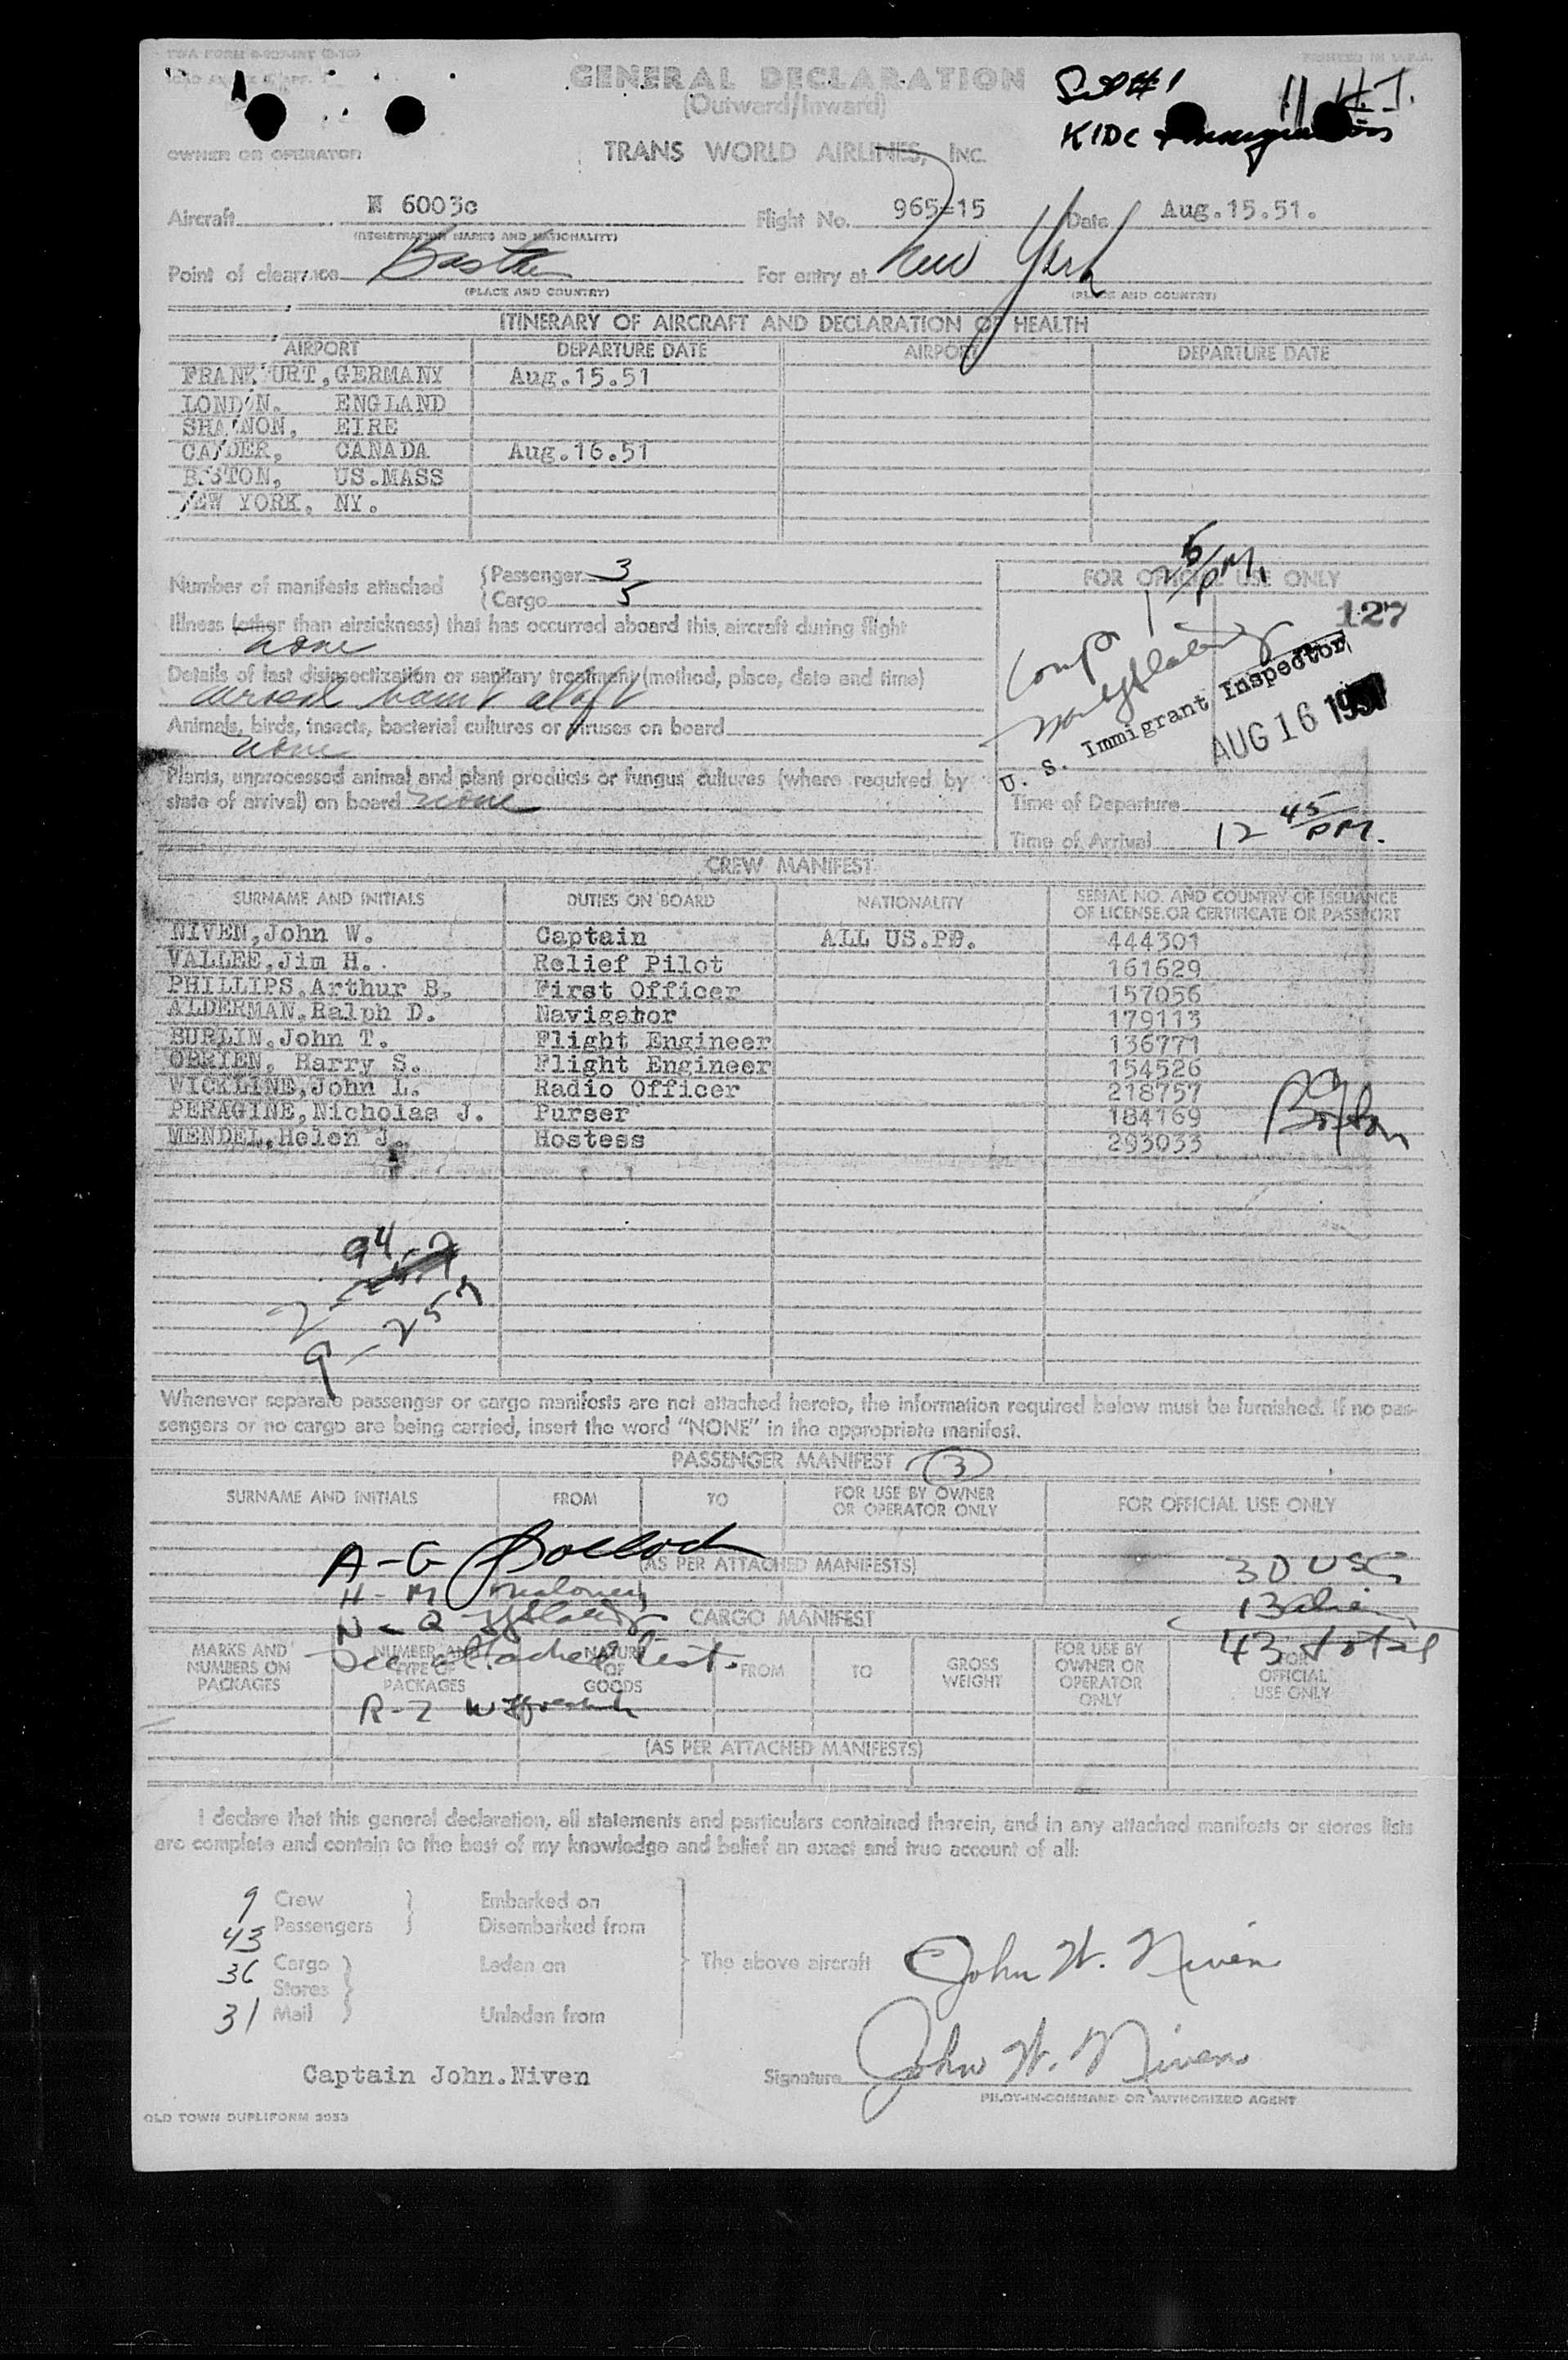 TWA FORM
PRINTED IN U.S.A.
GENERAL DECLARATION
(Outward/Inward)
#1
H.J.
KIDC
OWNER OR OPERATOR
TRANS WORLD AIRLINES, INC.
Aircraft N 6003c Flight No. 965-15 Date Aug.15.51.
(REGISTRATION MARKS AND NATIONALITY)
Point of clearance Boston For entry at New York
(PLACE AND COUNTRY) (PLACE AND COUNTRY)
ITINERARY OF AIRCRAFT AND DECLARATION OF HEALTH
AIRPORT DEPARTURE DATE AIRPORT DEPARTURE DATE
FRANKFURT,GERMANY Aug.15.51
LONDON. ENGLAND
SHANNON, EIRE
GANDER, CANADA Aug.16.51
BOSTON, US.MASS
NEW YORK. NY.
Number of manifests attached Passenger 3
Cargo 5
FOR OFFICIAL USE ONLY
127
Illness (other than airsickness) that has occurred aboard this aircraft during flight
none
Details of last disinsectization or sanitary treatment (method, place, date and time)
aloft
Animals, birds, insects, bacterial cultures or viruses on board
none
Plants, unprocessed animal and plant products or fungus cultures (where required by
state of arrival) on board none
U. S. Immigrant Inspector
AUG 16 1951
Time of Departure
Time of Arrival 12 45 PM.
CREW MANIFEST
SURNAME AND INITIALS DUTIES ON BOARD NATIONALITY SERIAL NO. AND COUNTRY OF ISSUANCE
OF LICENSE OR CERTIFICATE OR PASSPORT
NIVEN,John W. Captain ALL US.PP. 444301
VALLEE,Jim H. Relief Pilot 161629
PHILLIPS.Arthur B. First Officer 157056
ALDERMAN.Ralph D. Navigator 179113
BURLIN.John T. Flight Engineer 136771
OBRIEN, Harry S. Flight Engineer 154526
WICKLINE,John L. Radio Officer 218757
PERAGINE,Nicholas J. Purser 184169
MENDEL,Helen J. Hostess 293033
Boston
Whenever separate passenger or cargo manifests are not attached hereto, the information required below must be furnished. If no pas-
sengers or no cargo are being carried, insert the word "NONE" in the appropriate manifest.
PASSENGER MANIFEST 3
SURNAME AND INITIALS FROM TO FOR USE BY OWNER
OR OPERATOR ONLY FOR OFFICIAL USE ONLY
A-G
(AS PER ATTACHED MANIFESTS) 30 USC
H-M Maloney
13 Alien
N-Q
CARGO MANIFEST
43 total
See attached list.
MARKS AND
NUMBERS ON
PACKAGES
NUMBER AND
TYPE OF
PACKAGES
NATURE
OF
GOODS
FROM TO GROSS
WEIGHT
FOR USE BY
OWNER OR
OPERATOR
ONLY
FOR
OFFICIAL
USE ONLY
R-Z
(AS PER ATTACHED MANIFESTS)
I declare that this general declaration, all statements and particulars contained therein, and in any attached manifests or stores lists
are complete and contain to the best of my knowledge and belief an exact and true account of all:
9 Crew Embarked on
43 Passengers Disembarked from
36 Cargo Laden on The above aircraft John W. Niven
Stores
31 Mail Unladen from
Captain John.Niven Signature John W. Niven
PILOT-IN-COMMAND OR AUTHORIZED AGENT
OLD TOWN DUPLIFORM